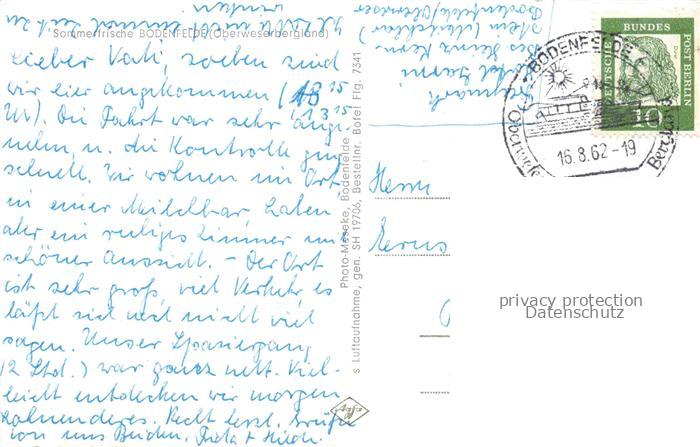 Sommerfrische BODENFELDE (Oberweserbergland)
Lieber Vati, soeben sind
wir hier angekommen (13 15
Uhr). Die Fahrt war sehr ange-
nehm, u. die Kontrolle ging
schnell. Wir wohnen im Ort,
in einer Milchbar, haben
aber ein ruhiges Zimmer mit
schöner Aussicht. – Der Ort
ist sehr groß, viel Verkehr, es
läßt sich noch nicht viel
sagen. Unser Spaziergang
(2 Std.) war ganz nett. Viel-
leicht entdecken wir morgen
Recht herzl. Grüße
von uns Beiden.
Photo-Meseke, Bodenfelde
s Luftaufnahme, gen. SH 19706, Bestellnr. Bofel Flg. 7341
Agfa
Bei Heinz Kern
Hotel Garni
Herrn
BODENFELDE
16.8.62-19
DEUTSCHE BUNDES POST BERLIN
10
privacy protection
Datenschutz